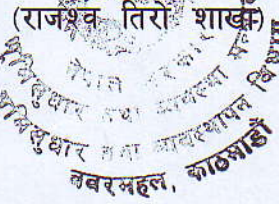 (राजश्व तिरो शाखा)
नेपाल सरकार
भूमिसुधार तथा व्यवस्था
भूमिसुधार तथा व्यवस्थापन विभाग
बबरमहल, काठमाडौं